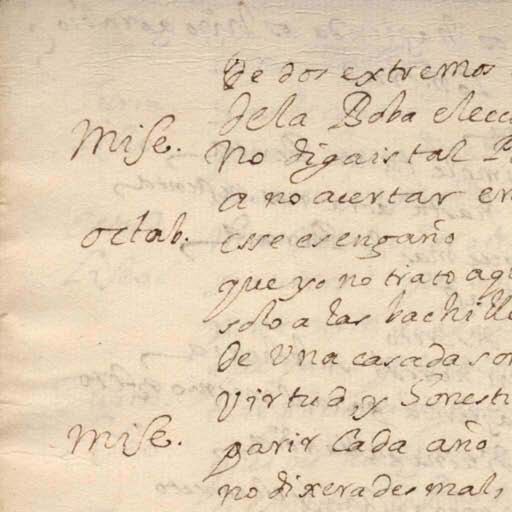 De dos extremos
de la Boba elecc
Mise. No digais tal P
a no acertar en
octab. esse es engaño
que yo no trato aqu
solo a las bachille
de Una casada son
Virtud, y Honesti
Mise. parir Cada año
no dixerades mal,